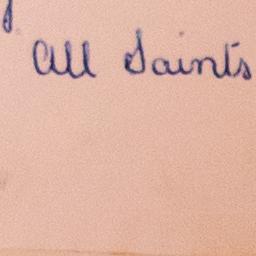 All Saints